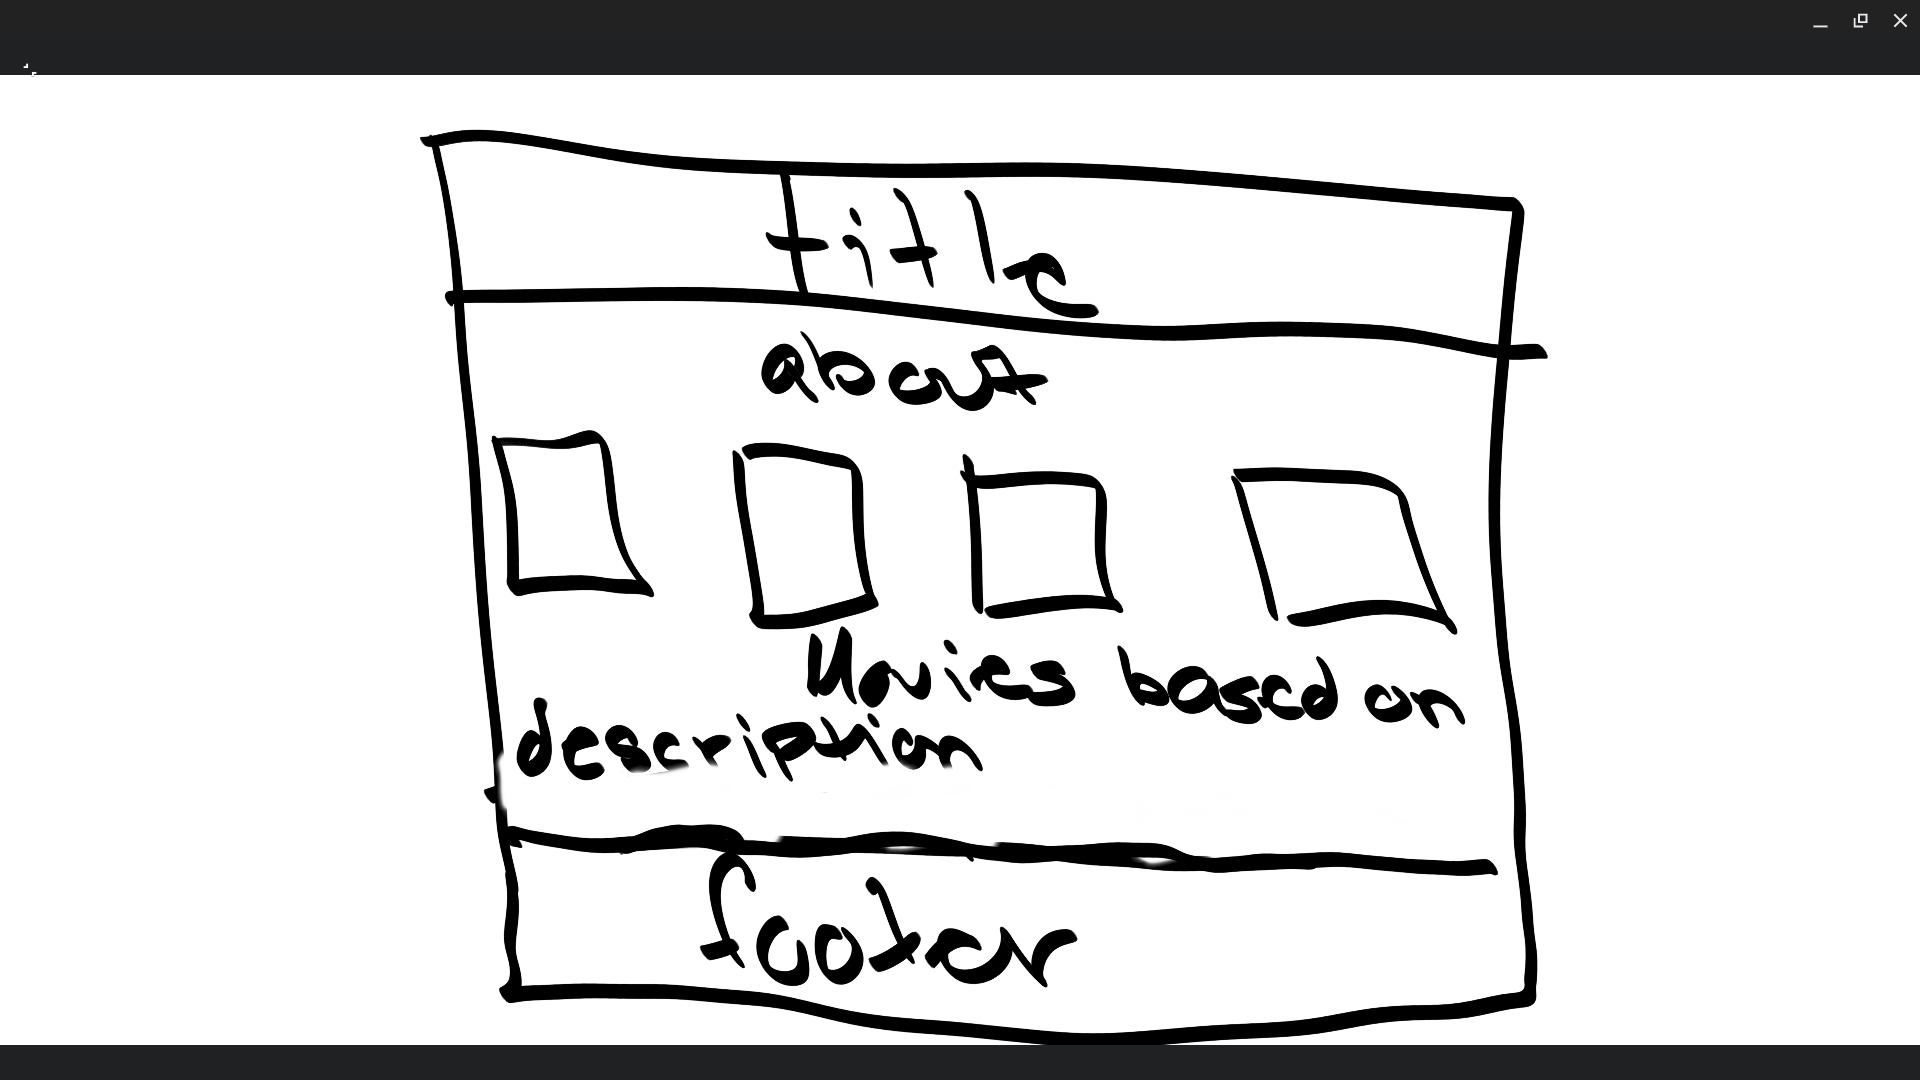 title
about
Movies based on
description
footer